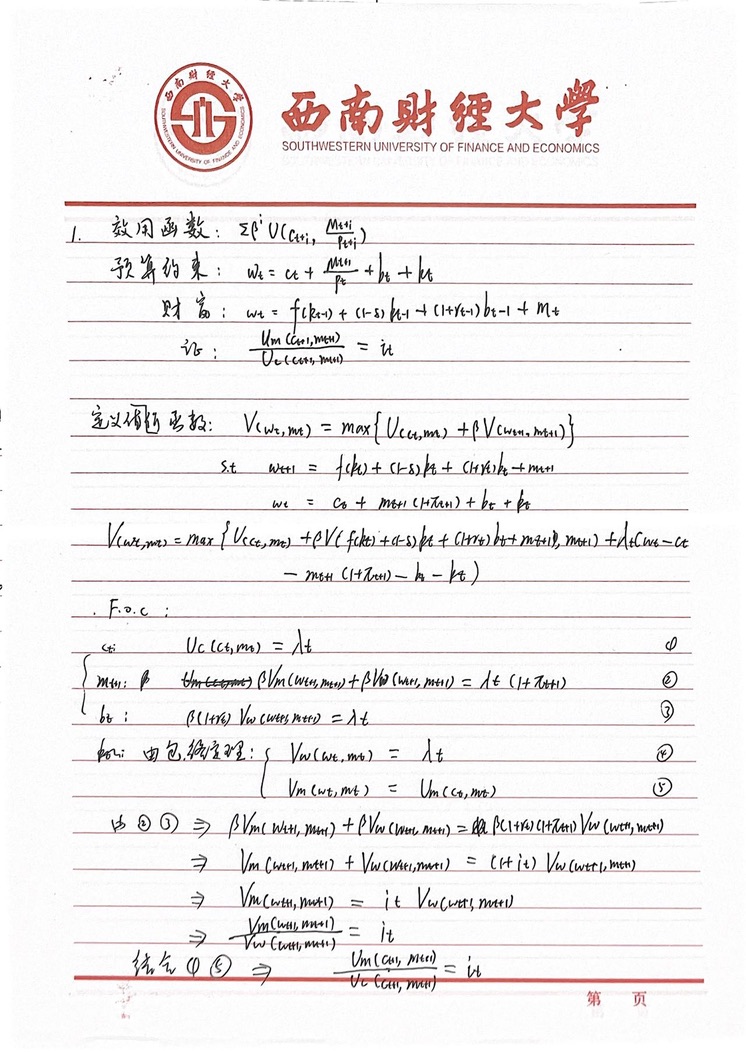 西南財經大學
SOUTHWESTERN UNIVERSITY OF FINANCE AND ECONOMICS
1. 效用函数: Σβ^i U(C_{t+i}, M_{t+i}/P_{t+i})
预算约束: w_t = c_t + M_{t+1}/P_t + b_t + k_t
财富: w_t = f(k_{t-1}) + (1-δ)k_{t-1} + (1+r_{t-1})b_{t-1} + m_t
证: U_m(c_{t+1}, m_{t+1}) / U_c(c_{t+1}, m_{t+1}) = i_t
定义值函数: V(w_t, m_t) = max{U(c_t, m_t) + βV(w_{t+1}, m_{t+1})}
s.t w_{t+1} = f(k_t) + (1-δ)k_t + (1+r_t)b_t + m_{t+1}
w_t = c_t + m_{t+1}(1+π_{t+1}) + b_t + k_t
V(w_t, m_t) = max{U(c_t, m_t) + βV(f(k_t) + (1-δ)k_t + (1+r_t)b_t + m_{t+1}, m_{t+1}) + λ_t(w_t - c_t
- m_{t+1}(1+π_{t+1}) - b_t - k_t)
F.o.c:
c_t: U_c(c_t, m_t) = λ_t ①
m_{t+1}: βV_m(w_{t+1}, m_{t+1}) + βV_w(w_{t+1}, m_{t+1}) = λ_t(1+π_{t+1}) ②
b_t: β(1+r_t)V_w(w_{t+1}, m_{t+1}) = λ_t ③
由包络定理: V_w(w_t, m_t) = λ_t ④
V_m(w_t, m_t) = U_m(c_t, m_t) ⑤
由②③ ⇒ βV_m(w_{t+1}, m_{t+1}) + βV_w(w_{t+1}, m_{t+1}) = β(1+r_t)(1+π_{t+1})V_w(w_{t+1}, m_{t+1})
⇒ V_m(w_{t+1}, m_{t+1}) + V_w(w_{t+1}, m_{t+1}) = (1+i_t)V_w(w_{t+1}, m_{t+1})
⇒ V_m(w_{t+1}, m_{t+1}) = i_t V_w(w_{t+1}, m_{t+1})
⇒ V_m(w_{t+1}, m_{t+1}) / V_w(w_{t+1}, m_{t+1}) = i_t
结合①⑤ ⇒ U_m(c_{t+1}, m_{t+1}) / U_c(c_{t+1}, m_{t+1}) = i_t
第 页